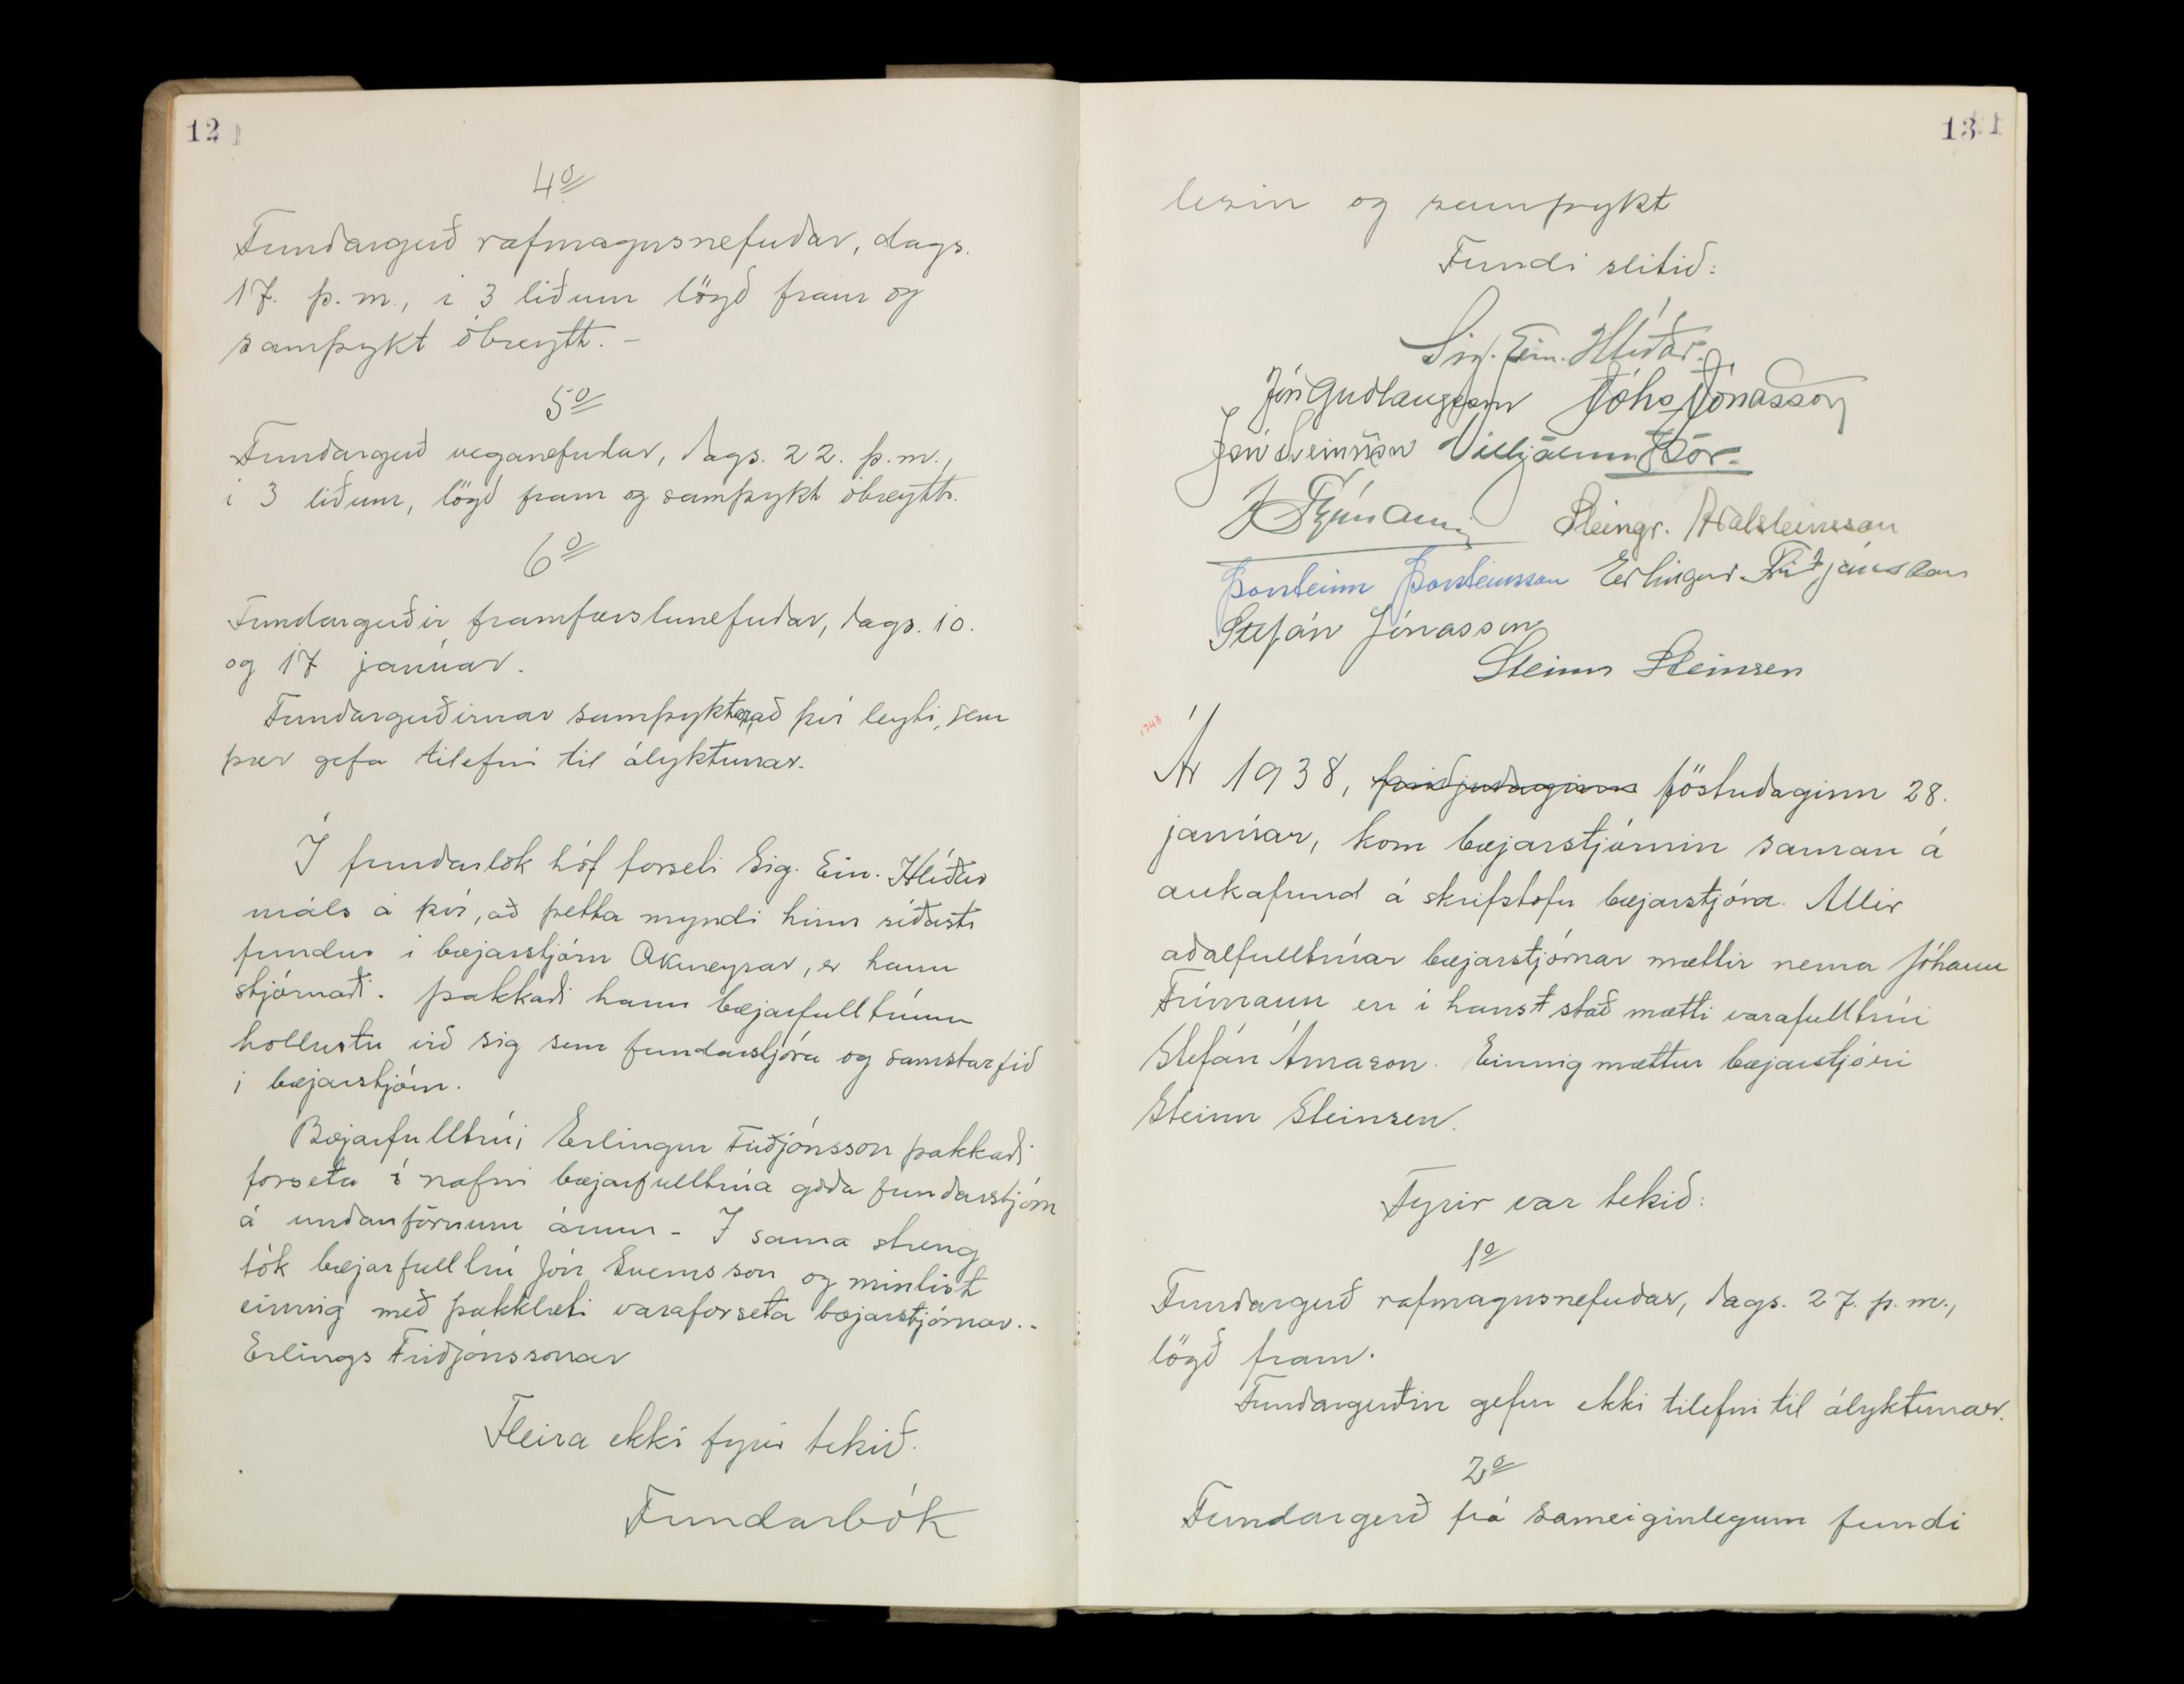 12
4º
Fundargerð rafmagnsnefndar, dags.
17. þ.m., í 3 liðum lögð fram og
samþykt óbreytt. -
5º
Fundargerð veganefndar, dags. 22. þ.m.,
í 3 liðum, lögð fram og samþykt óbreytt.
6º
Fundargerðir framfærslunefndar, dags. 10.
og 17 janúar.
Fundargerðirnar samþyktar, að því leyti, sem
þær gefa tilefni til ályktunar.
Í fundarlok hóf forseti Sig. Ein. Hlíðar
máls á því, að þetta myndi hinn síðasti
fundur í bæjarstjórn Akureyrar, er hann
stjórnaði. þakkaði hann bæjarfulltrúum
hollustu við sig sem fundarstjóra og samstarfið
í bæjarstjórn.
Bæjarfulltrúi Erlingur Friðjónsson þakkaði
forseta í nafni bæjarfulltrúa góða fundarstjórn
á undanförnum árum - Í sama streng
tók bæjarfulltrúi Jón Sveinsson og mintist
einnig með þakklæti varaforseta bæjarstjórnar. -
Erlings Friðjónssonar
Fleira ekki fyrir tekið.
Fundarbók
13
lesin og samþykt
Fundi slitið:
Sig. Ein. Hlíðar.
Jón Guðlaugsson Jóhs Jónasson
Jón Sveinsson Vilhjálmur Þór.
J Frímann Steingr. Aðalsteinsson
Þorsteinn Þorsteinsson Erlingur Friðjónsson
Stefán Jónasson
Steinn Steinsen
1743
Ár 1938, þriðjudaginn föstudaginn 28.
janúar, kom bæjarstjórnin saman á
aukafund á skrifstofu bæjarstjóra. Allir
aðalfulltrúar bæjarstjórnar mættir nema Jóhann
Frímann en í hans stað mætti varafulltrúi
Stefán Árnason. Einnig mættur bæjarstjóri
Steinn Steinsen.
Fyrir var tekið:
1º
Fundargerð rafmagnsnefndar, dags. 27. þ.m.,
lögð fram.
Fundargerðin gefur ekki tilefni til ályktunar.
2º
Fundargerð frá sameiginlegum fundi